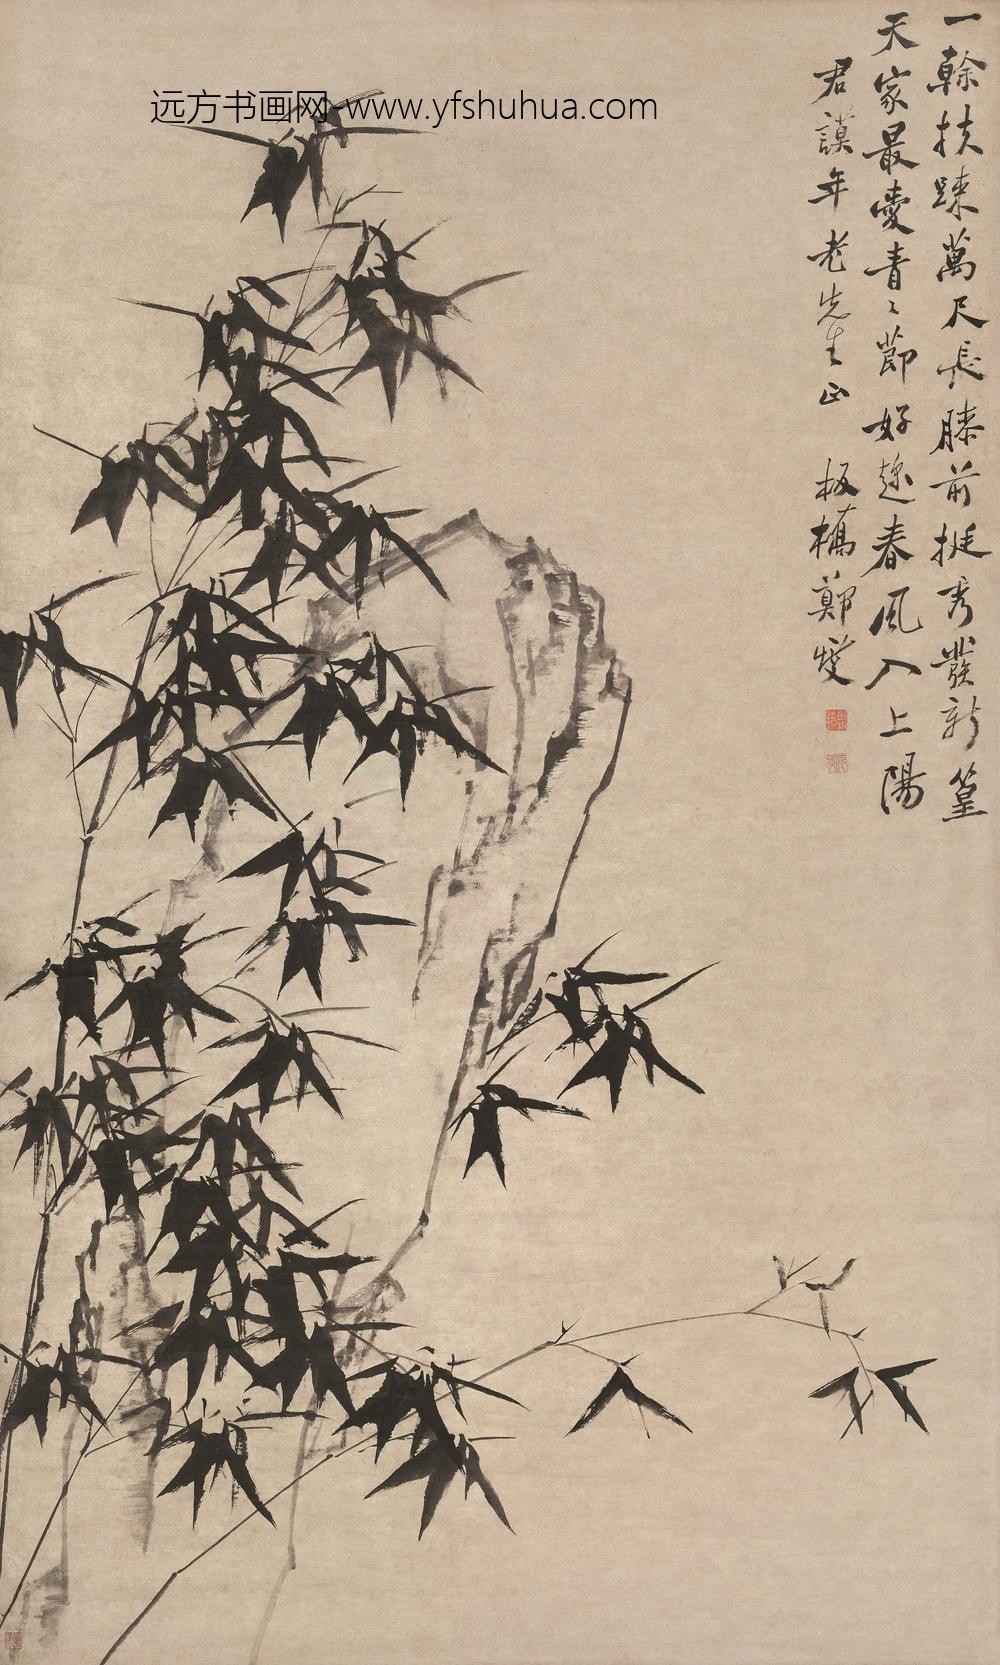 远方书画网-www.yfshuhua.com
一榦扶疎萬尺長膝前挺秀發新篁
天家最愛青〻節好趂春風入上陽
君謨年老先生正 板橋鄭燮